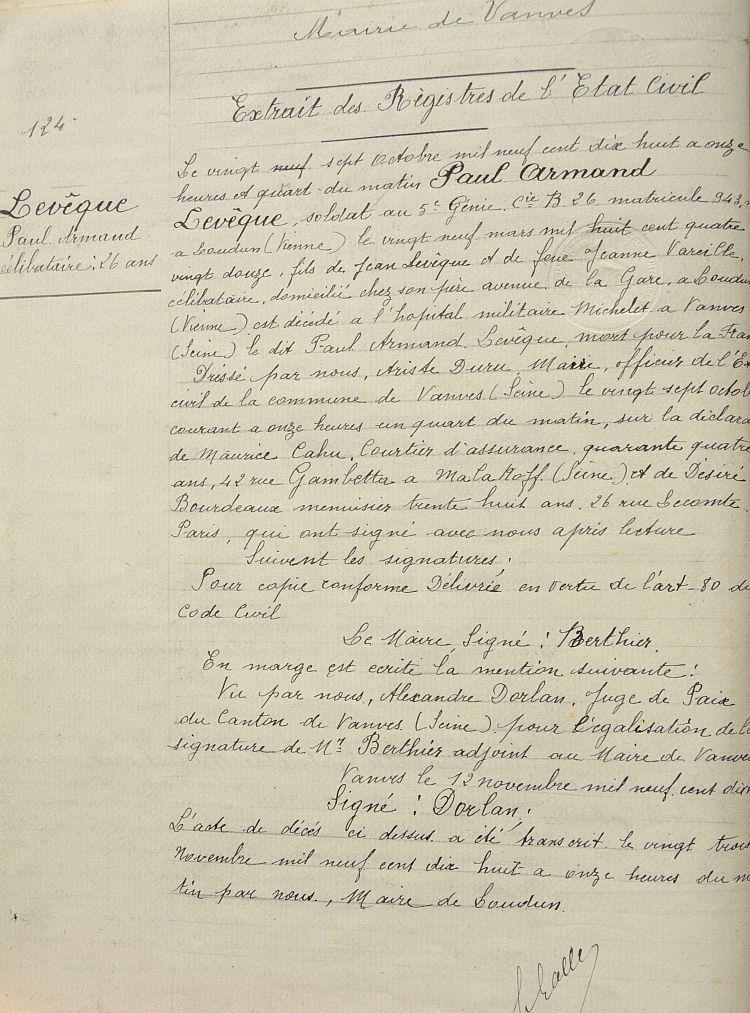 Mairie de Vanves
Extrait des Régistres de l'Etat Civil
124.
Levêque
Paul Armand
célibataire : 26 ans
Le vingt neuf sept Octobre mil neuf cent dix huit a onze
heures et quart du matin Paul Armand
Levêque, soldat au 5e Génie, Cie B. 26, matricule 943,
a Loudun (Vienne) le vingt neuf mars mil huit cent quatre
vingt douze, fils de Jean Levêque et de feue Jeanne Vareille,
célibataire, domicilié chez son père avenue de la Gare, a Loudun
(Vienne) est décédé a l'hopital militaire Michelet a Vanves
(Seine) le dit Paul Armand Levêque, mort pour la Fran
Dressé par nous, Ariste Duru, Maire, officier de l'E
civil de la commune de Vanves (Seine) le vingt sept octob
courant a onze heures un quart du matin, sur la déclara
de Maurice Cahu, Courtier d'assurance, quarante quatre
ans, 42 rue Gambetta a Malakoff (Seine), et de Désiré
Bourdeaux menuisier trente huit ans, 26 rue Lecomte
Paris, qui ont signé avec nous après lecture
Suivent les signatures ;
Pour copie conforme Délivrée en vertu de l'art-80 du
Code Civil
Le Maire, Signé : Berthier,
En marge est ecrite la mention suivante :
Vu par nous, Alexandre Dorlan, Juge de Paix
du Canton de Vanves (Seine) pour l'égalisation de la
signature de Mr Berthier adjoint au Maire de Vanves
Vanves le 12 novembre mil neuf cent dix
Signé : Dorlan ;
L'acte de décés ci dessus a été transcrit le vingt trois
Novembre mil neuf cent dix huit a onze heures du m
tin par nous, Maire de Loudun.